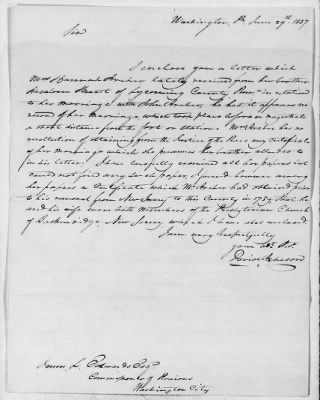 Washington, Pa. June 29th. 1837
Sir
I enclose you a letter which
Mrs Hannah Archer lately received from her brother
Street of Lycoming County Penna in relation
to her marriage with John Archer, that it appears no
record of her marriage, which took place before a magistrate
a short distance from the fort or station. Mrs Archer has no
recollection of obtaining from the Justice of the Peace any certificate
of her marriage which she presumes her brother alludes to
in his letter. I have carefully examined all her papers but
could not find any such paper, I found however among
her papers a Certificate which Mr Archer had obtained prior
to his removal from New Jersey to this County in 1789, that he
and his wife were both members of the Presbyterian Church
of Baskenridge New Jersey which I have also enclosed.
I am very respectfully
your Obt. St.
David Acheson
James L. Edwards Esqr.
Commissioner of Pensions
Washington City